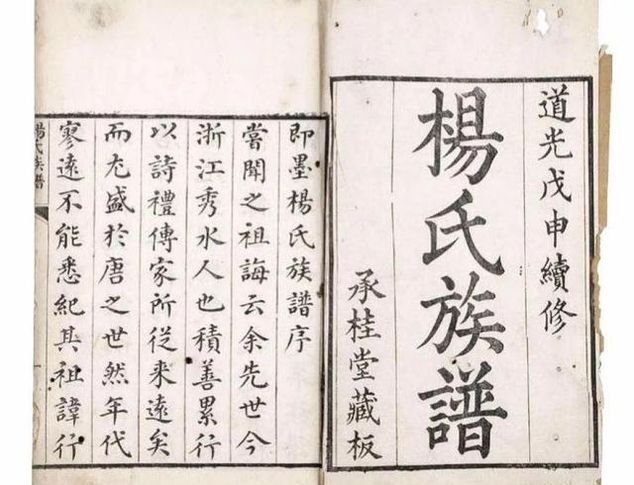 道光戊申續修
楊氏族譜
承桂堂藏板
即墨楊氏族譜序
嘗聞之祖誨云余先世今
浙江秀水人也積善累行
以詩禮傳家所從來遠矣
而尤盛於唐之世然年代
寥遠不能悉紀其祖諱行
楊氏族譜